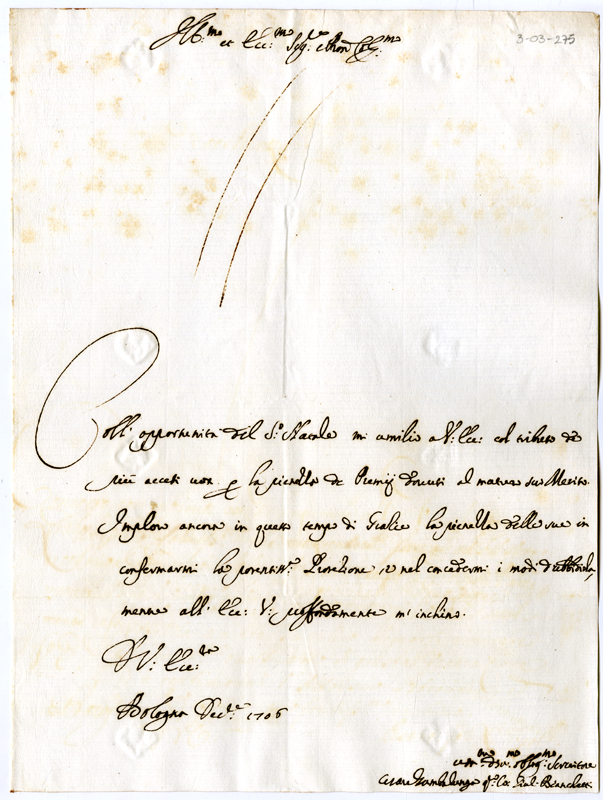 Ill.mo et Ecc.mo Sig.re Pron Col.mo
3-03-275
Coll' opportunità del S.o Natale mi umilio a V: Ecc: col tributo de
più accesi voti p la pienezza de Premij dovuti al maturo suo Merito.
Imploro ancora in questo tempo di Grazie la pienezza delle sue in
confermarmi la potentiss.a Protezione, e nel concedermi i modi d'ubbidirla,
mentre all' Ecc: V: profondamente m' inchino.
D V: Ecc.za
Bologna Dec.re 1706
um.mo dev.mo obblig.mo Servitore
Cesare Gio: Bianchetti